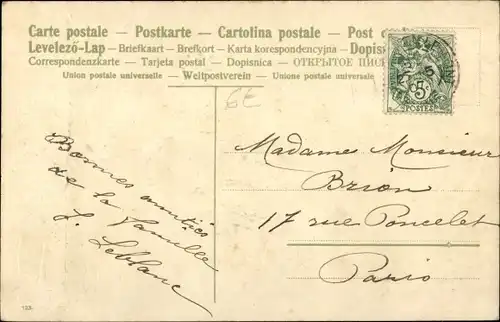 Carte postale – Postkarte – Cartolina postale – Post
Levelező-Lap – Briefkaart – Brefkort – Karta korespondencyjna – Dopis
Correspondenzkarte – Tarjeta postal – Dopisnica – ОТКРЫТОЕ ПИС
Union postale universelle – Weltpostverein – Unione postale universale
5c
POSTES
6E
Bonnes amitiés
de la famille
L. Leblanc
Madame Monsieur
Brion
17 rue Poncelet
Paris